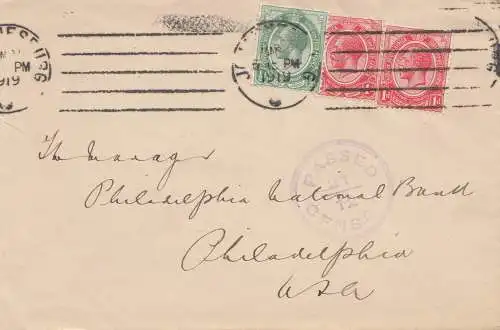 NESBURG
PM
1919
PM
1919
PASSED
CENSOR
The Manager
Philadelphia National Bank
Philadelphia
USA